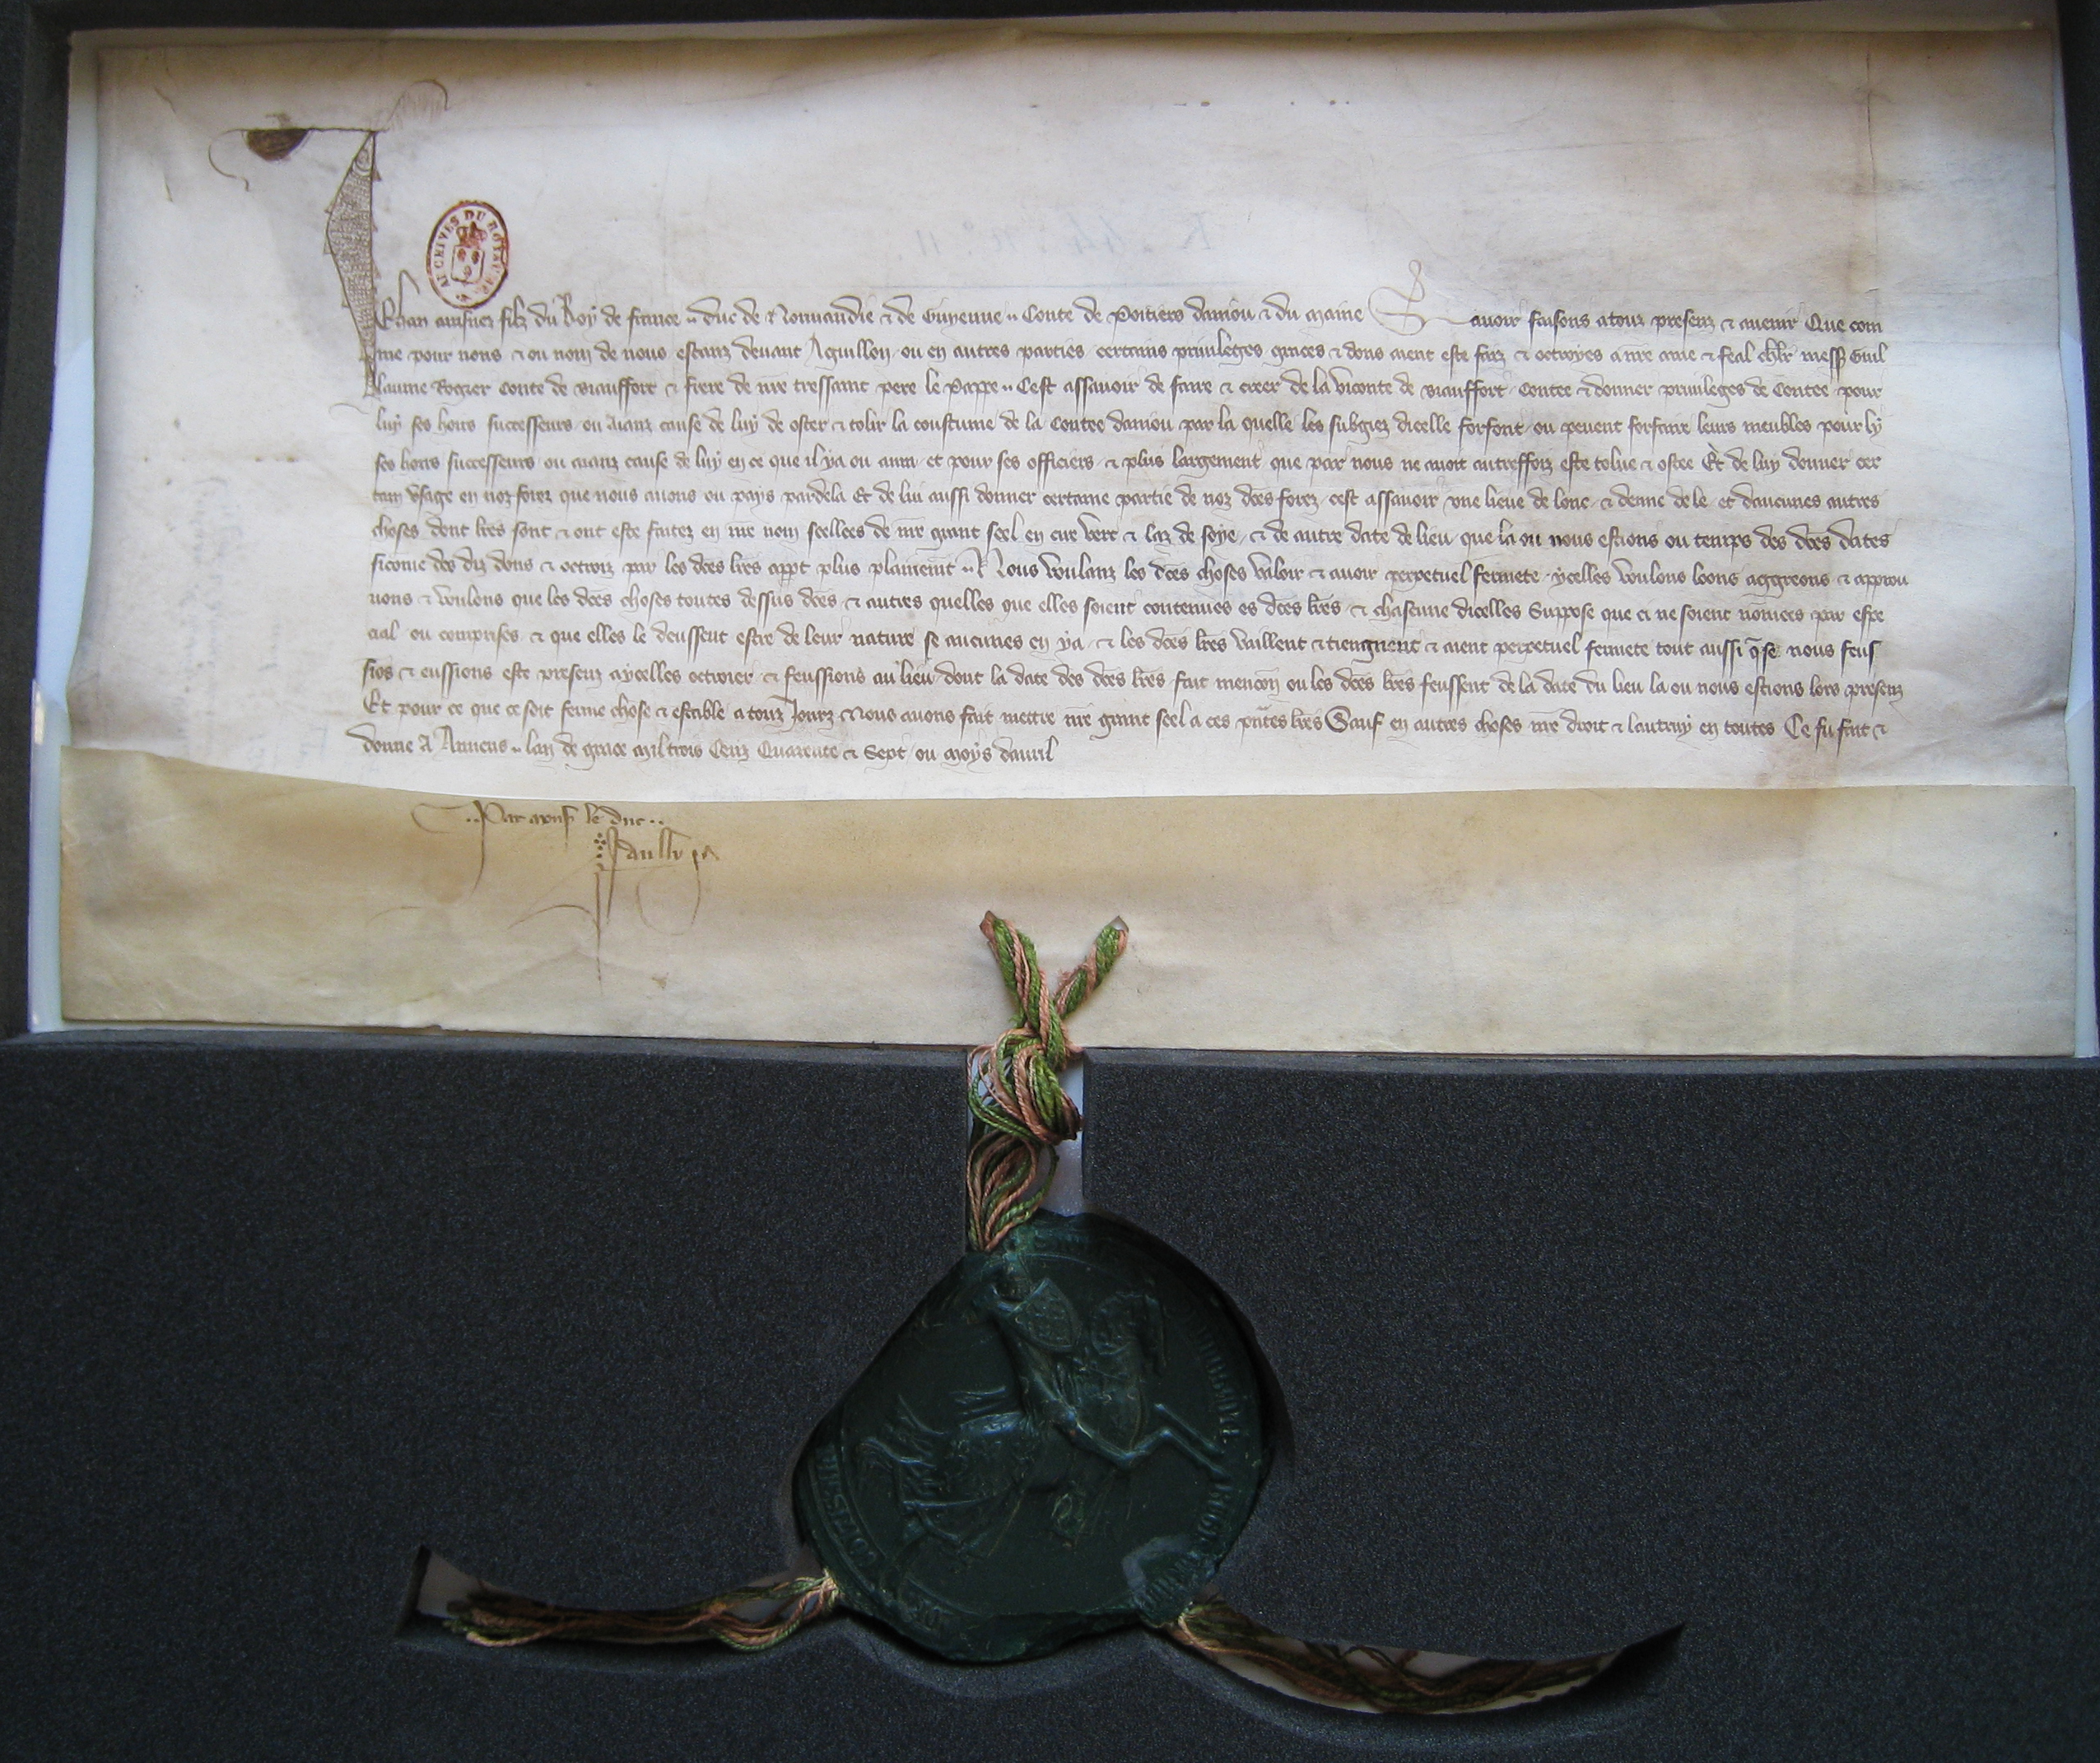 ARCHIVES DU ROYAUME
Jehan ainsnez filz du Roy de france duc de Normandie & de Guyenne Conte de Poitiers daniou & du Maine Savoir faisons a touz presenz & avenir Que com
me pour nous & ou nom de nous estanz devant Aguillon ou en autres parties certains privileges graces & dons aient este faiz & octroyes a nre ame & feal chlr mess Guil
laume Rogier Conte de Biauffort & frere de nre tressaint pere le Pappe Cest assavoir de faire & creer de la viconte de Biauffort Contee & donner privileges de Contee pour
luy ses hoirs successeurs ou aianz cause de luy de oster & tolir la coustume de la Contee daniou par la quelle les subgiez dicelle forfont ou pevent forfaire leurs meubles pour ly
ses hoirs successeurs ou aianz cause de luy en ce que il ya ou aura et pour ses officiers & plus largement que par nous ne avoit autreffoiz este tolue & ostee Et de luy donner cer
tain usage en noz forez que nous avons ou pays pardela Et de lui aussi donner certaine partie de noz dces forez cest assavoir une lieue de lonc & demie de le et daucunes autres
choses dont lres sont & ont este faites en nre nom scellees de nre grant seel en cire vert & laz de soye & de autre date de lieu que la ou nous estions ou temps des dces dates
sicome des diz dons & octroiz par les dces lres appt plus plainemt Nous voulanz les dces choses valoir & avoir perpetuel fermete ycelles voulons loons aggreons & approu
vons & voulons que les dces choses toutes dessus dces & autres quelles que elles soient contenues es dces lres & chascune dicelles Suppose que ci ne soient nomees par espe
cial ou comprises & que elles le deussent estre de leur nature se aucunes en ya & les dces lres vaillent & tiengnent & aient perpetuel fermete tout aussi q se nous feus
sios & eussions este presenz a ycelles octroier & feussions au lieu dont la date des dces lres fait mencon ou les dces lres feussent de la date du lieu la ou nous estions lors presenz
Et pour ce que ce soit ferme chose & estable a touz Jourz Nous avons fait mettre nre grant seel a ces pntes lres Sauf en autres choses nre droit & lautruy en toutes Ce fu fait &
donne A Amiens lan de grace Mil trois Cenz Quarente & Sept ou moys davril
Par mons le duc